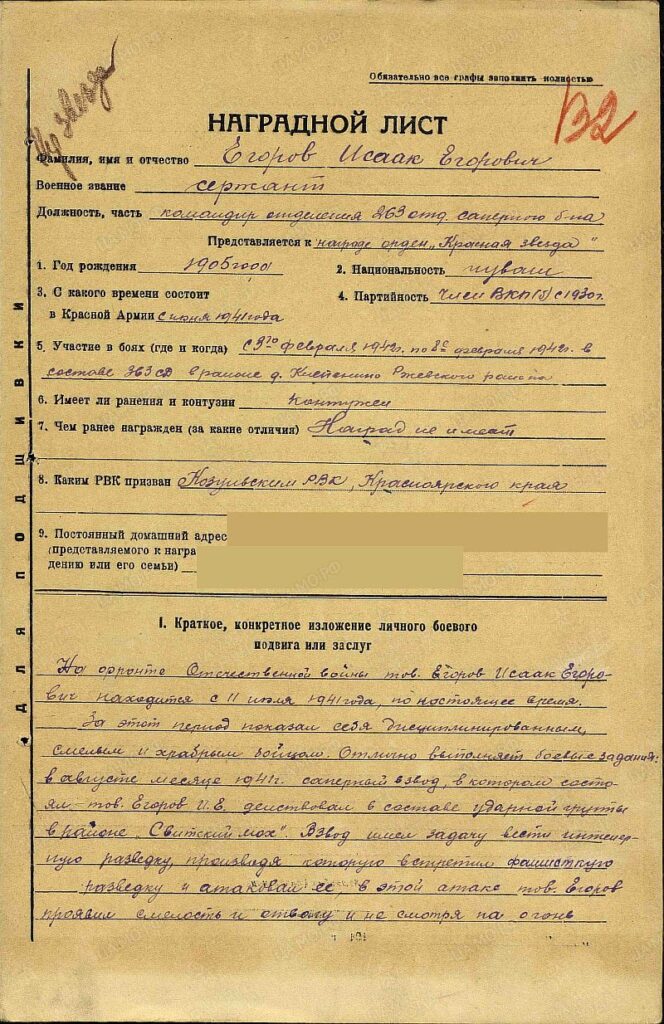 Кр звезда
Обязательно все графы заполнить полностью
132
НАГРАДНОЙ ЛИСТ
Фамилия, имя и отчество Егоров Исаак Егорович
Военное звание сержант
Должность, часть командир отделения 263 отд. саперного б-на
Представляется к награде орден „Красная звезда"
1. Год рождения 1905 года 2. Национальность чуваш
3. С какого времени состоит 4. Партийность Член ВКП(б) с 1930г.
в Красной Армии с июня 1941 года
5. Участие в боях (где и когда) с 3го февраля 1942г. по 8е февраля 1942г. в
составе 363 сд в районе д. Ржевского района
6. Имеет ли ранения и контузии контужен
7. Чем ранее награжден (за какие отличия) Наград не имеет
8. Каким РВК призван Козульским РВК, Красноярского края
9. Постоянный домашний адрес
(представляемого к награ
дению или его семьи)
I. Краткое, конкретное изложение личного боевого
подвига или заслуг
На фронте Отечественной войны тов. Егоров Исаак Егоро-
вич находится с 11 июля 1941 года, по настоящее время.
За этот период показал себя дисциплинированным,
смелым и храбрым бойцом. Отлично выполняет боевые задания:
в августе месяце 1941г. саперный взвод, в котором состо-
ял тов. Егоров И.Е. действовал в составе ударной группы
в районе „Свитский мох". Взвод имел задачу вести инженер-
ную разведку, производя которую встретил фашисткую
разведку и атаковал ее в этой атаке тов. Егоров
проявил смелость и отвагу и не смотря на огонь
ДЛЯ ПОДШИВКИ